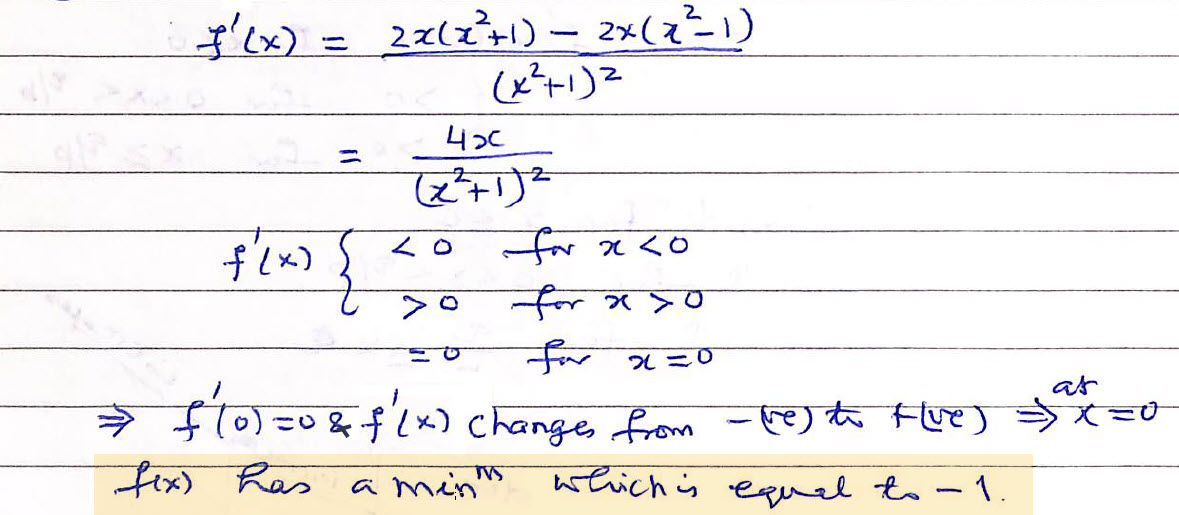 f'(x) = 2x(x²+1) − 2x(x²−1) / (x²+1)²
= 4x / (x²+1)²
f'(x) { < 0 for x < 0
> 0 for x > 0
= 0 for x = 0
⇒ f'(0) = 0 & f'(x) changes from −(ve) to +(ve) ⇒ at x = 0
f(x) has a minᵐ which is equal to −1.